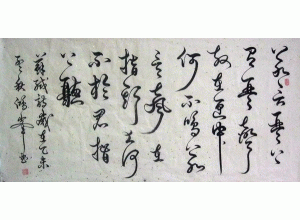 若言琴上
有琴聲
放在匣中
何不鳴若
言聲在
指頭上何
不於君指
上聽
蘇軾詩 歲在乙未
秋